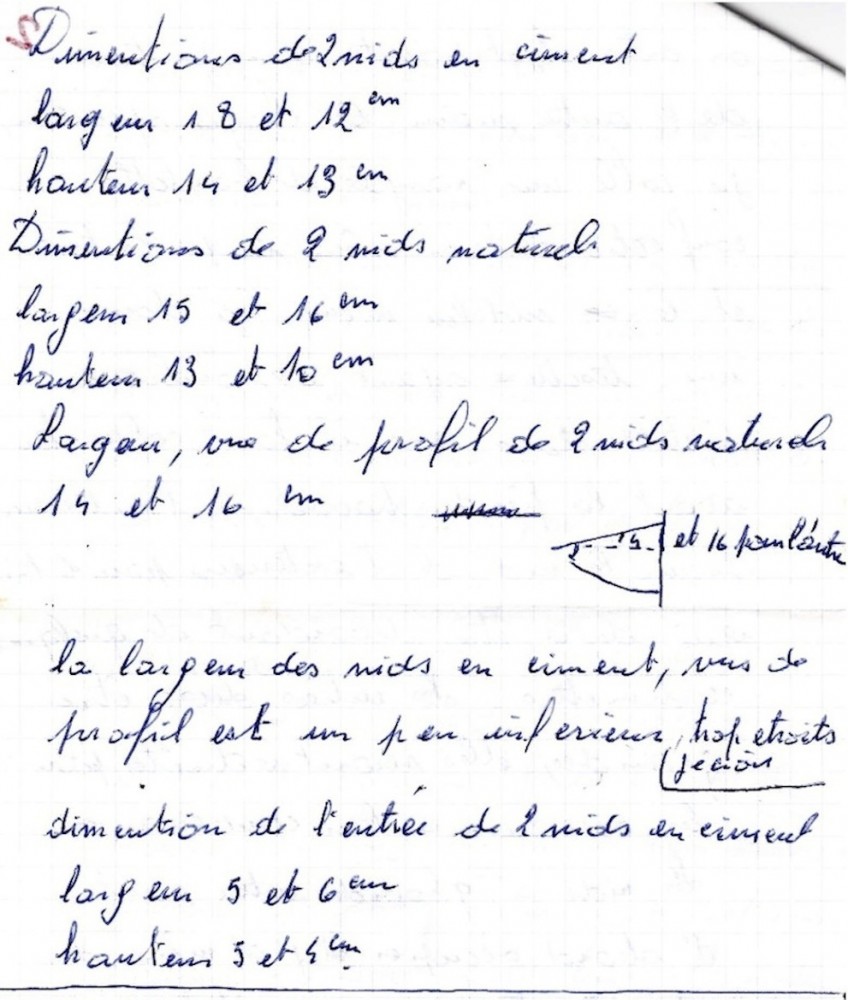 Dimentions de 2 nids en ciment
largeur 18 et 12 cm
hauteur 14 et 13 cm
Dimentions de 2 nids naturels
largeur 15 et 16 cm
hauteur 13 et 10 cm
Largeur, vue de profil de 2 nids naturels
14 et 16 cm
et 16 pour l'autre
la largeur des nids en ciment, vus de
profil est un peu inférieur, trop etroits
je crois
dimention de l'entrée de 2 nids en ciment
largeur 5 et 6 cm
hauteur 5 et 4 cm